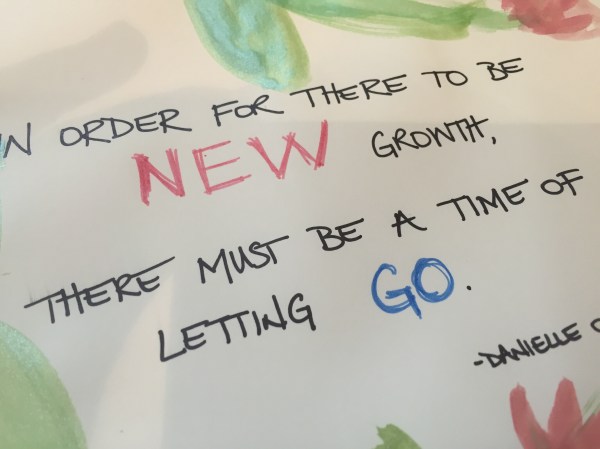 N ORDER FOR THERE TO BE
NEW GROWTH,
THERE MUST BE A TIME OF
LETTING GO.
-DANIELLE